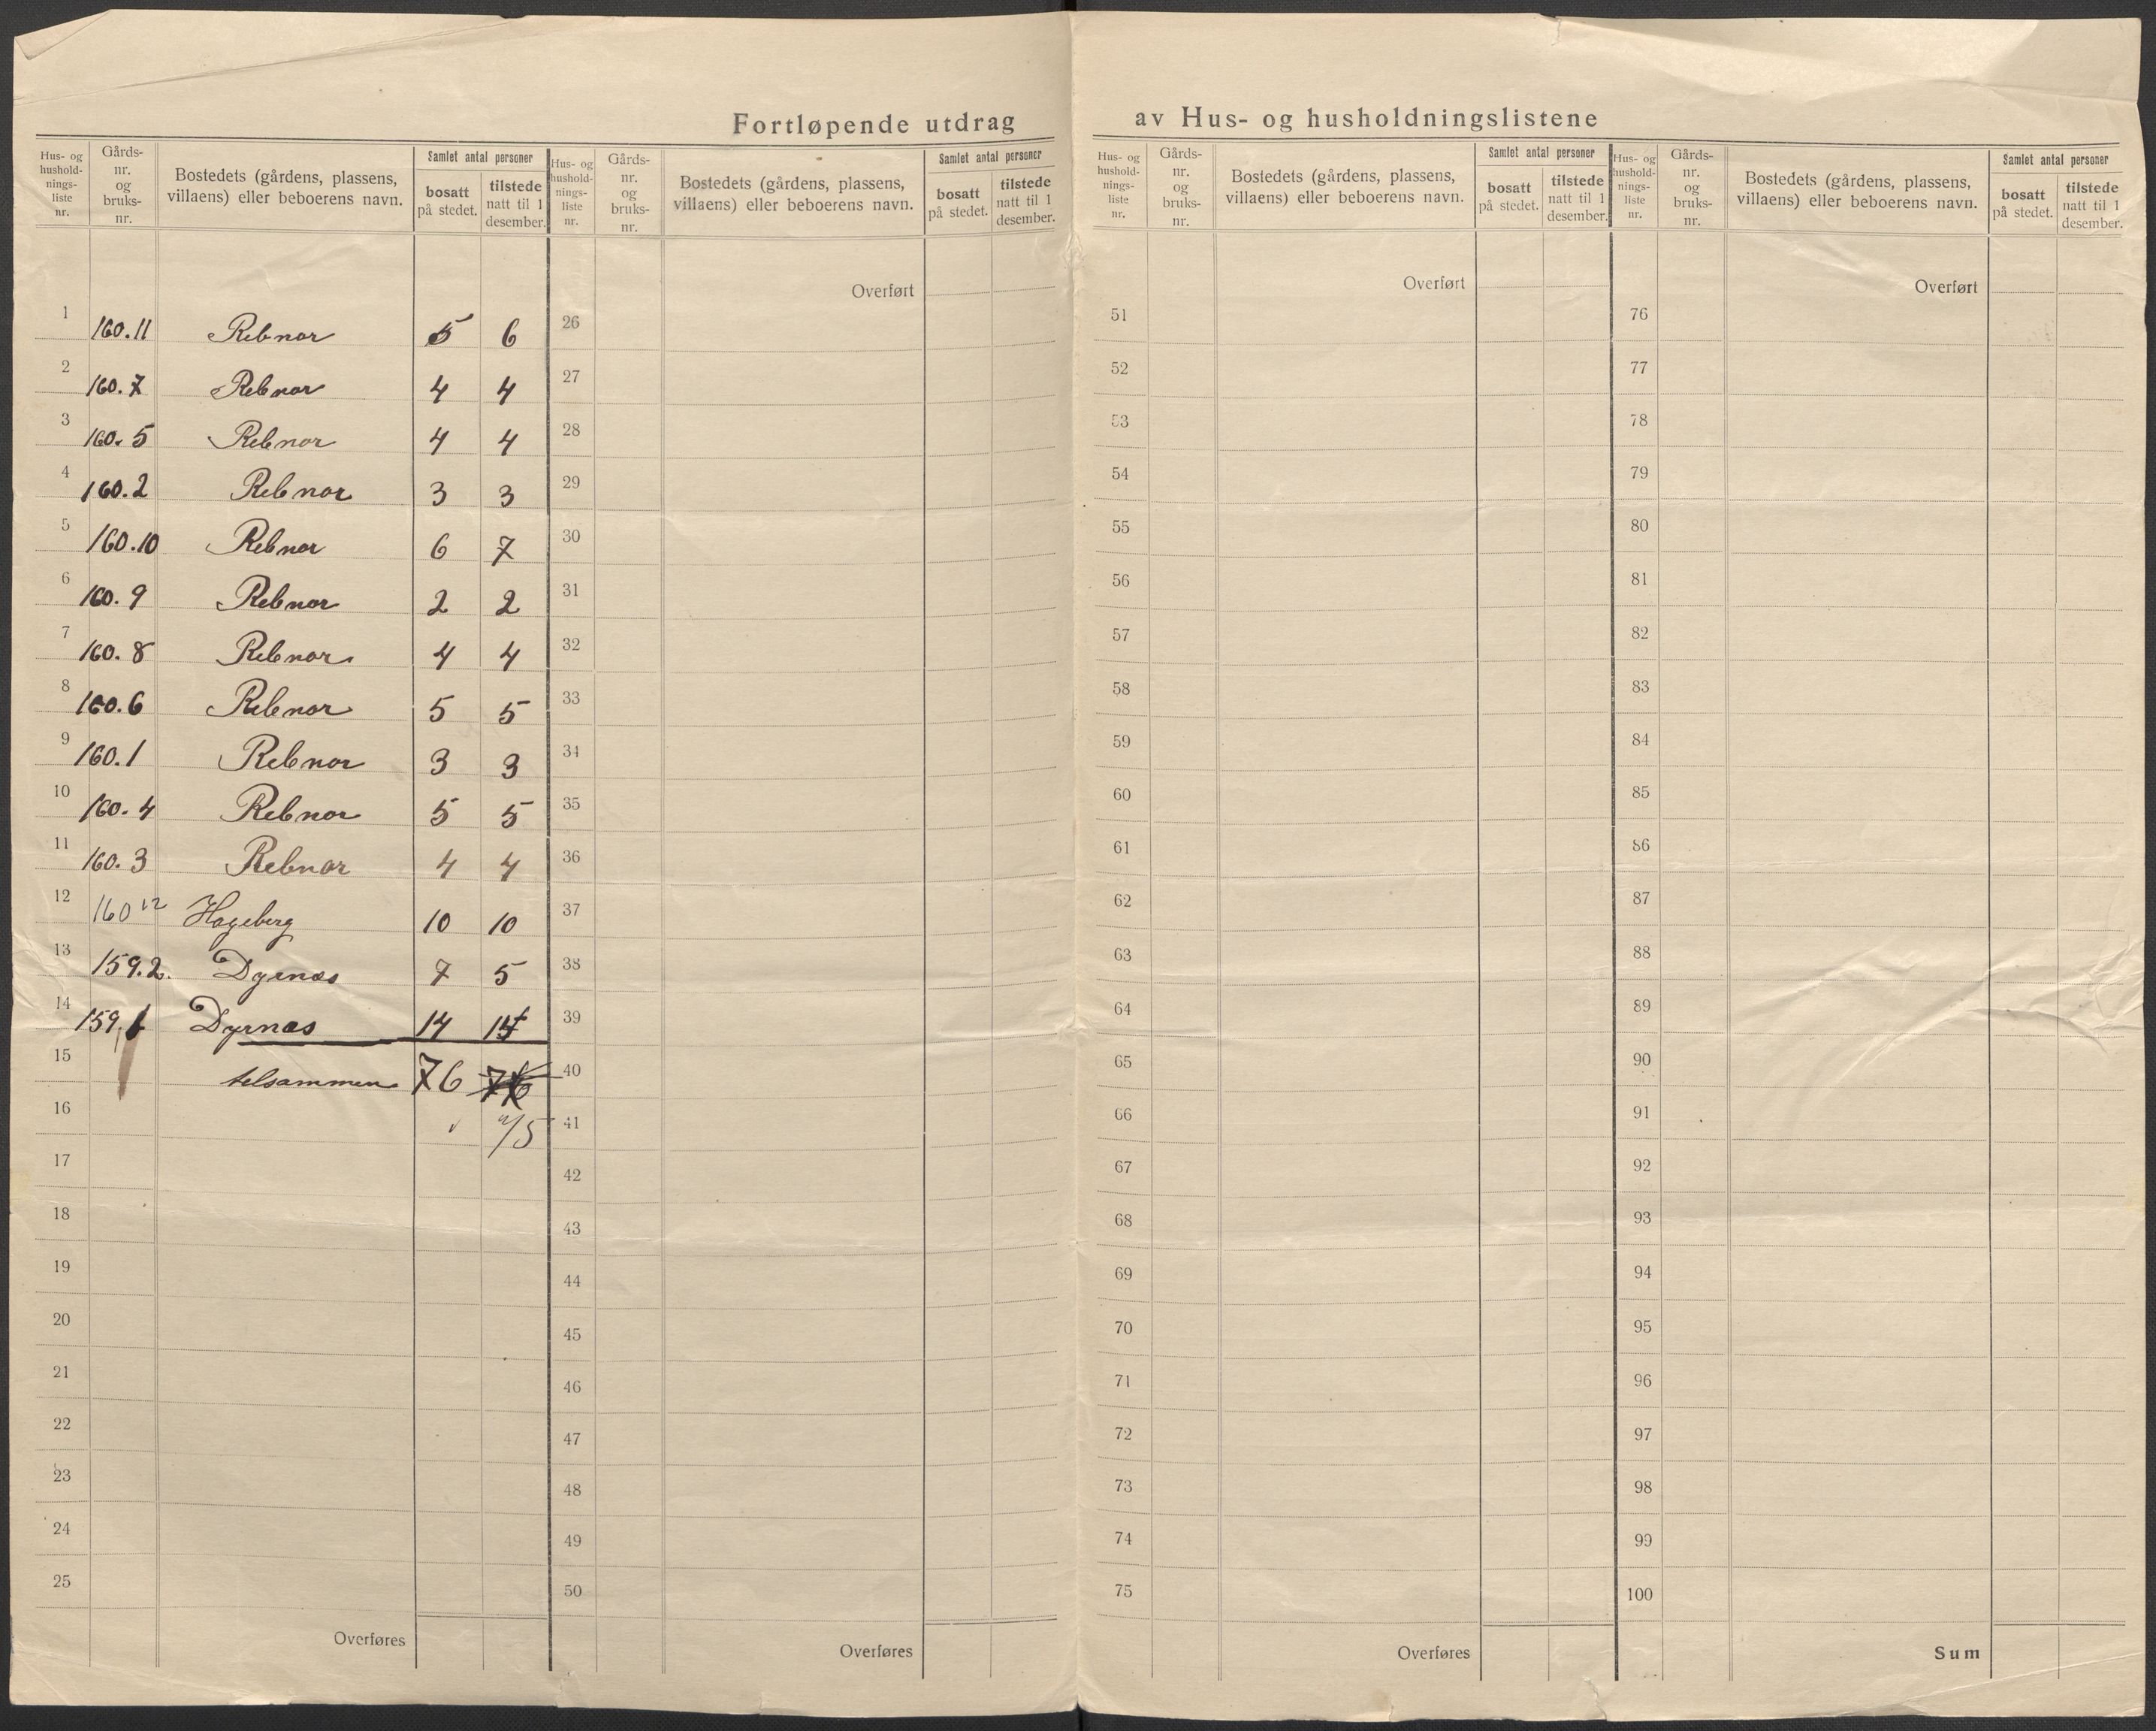 Fortløpende utdrag av Hus- og husholdningslistene
Hus- og hushold- nings- liste nr. Gårds- nr. og bruks- nr. Bostedets (gårdens, plassens, villaens) eller beboerens navn. Samlet antal personer bosatt på stedet. tilstede natt til 1 desember.
1 160.11 Rebnor 5 6
2 160.7 Rebnor 4 4
3 160.5 Rebnor 4 4
4 160.2 Rebnor 3 3
5 160.10 Rebnor 6 7
6 160.9 Rebnor 2 2
7 160.8 Rebnor 4 4
8 160.6 Rebnor 5 5
9 160.1 Rebnor 3 3
10 160.4 Rebnor 5 5
11 160.3 Rebnor 4 4
12 160 12 Hageberg 10 10
13 159.2. Dyrnes 7 5
14 159.1 Dyrnes 14
15 telsammen 76
16
17
18
19
20
21
22
23
24
25
Overføres
Hus- og hushold- nings- liste nr. Gårds- nr. og bruks- nr. Bostedets (gårdens, plassens, villaens) eller beboerens navn. Samlet antal personer bosatt på stedet. tilstede natt til 1 desember.
Overført
26
27
28
29
30
31
32
33
34
35
36
37
38
39
40
41
42
43
44
45
46
47
48
49
50
Overføres
Hus- og hushold- nings- liste nr. Gårds- nr. og bruks- nr. Bostedets (gårdens, plassens, villaens) eller beboerens navn. Samlet antal personer bosatt på stedet. tilstede natt til 1 desember.
Overført
51
52
53
54
55
56
57
58
59
60
61
62
63
64
65
66
67
68
69
70
71
72
73
74
75
Overføres
Hus- og hushold- nings- liste nr. Gårds- nr. og bruks- nr. Bostedets (gårdens, plassens, villaens) eller beboerens navn. Samlet antal personer bosatt på stedet. tilstede natt til 1 desember.
Overført
76
77
78
79
80
81
82
83
84
85
86
87
88
89
90
91
92
93
94
95
96
97
98
99
100
Sum